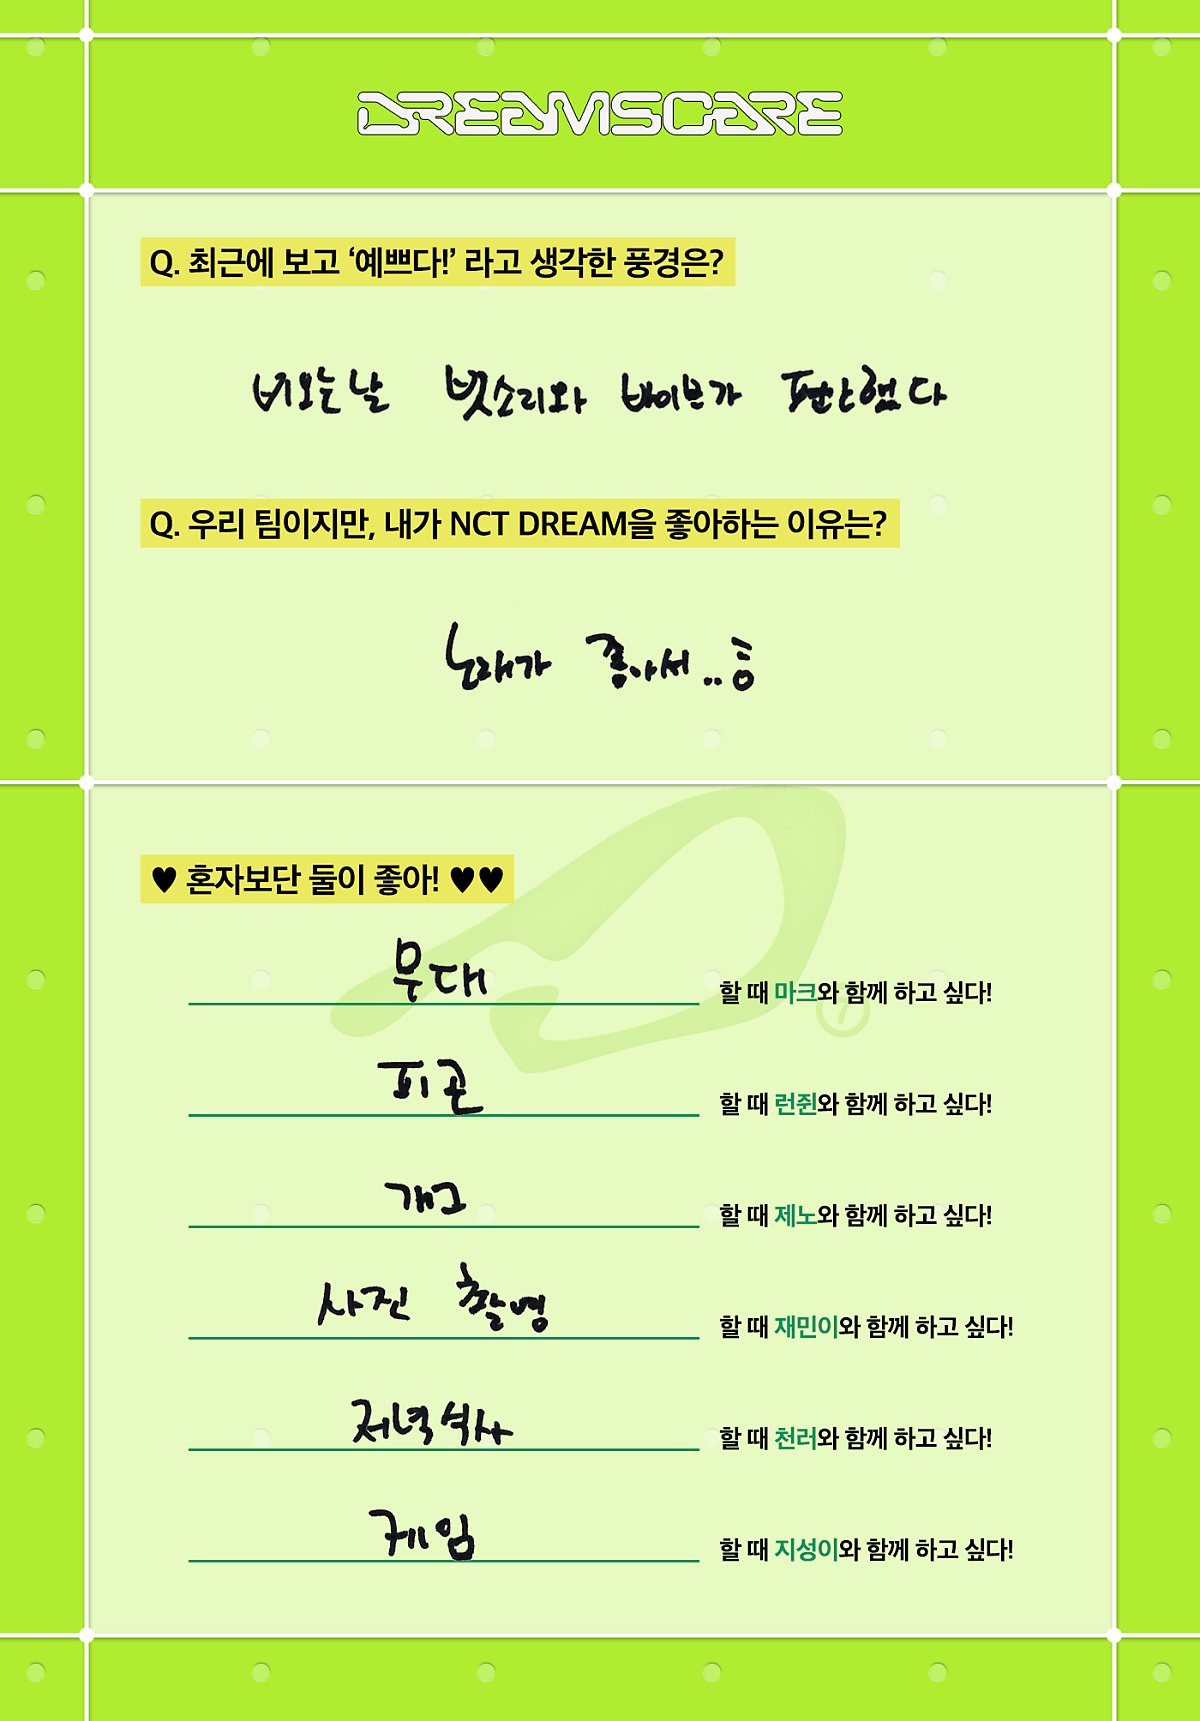 DREAMSCAPE
Q. 최근에 보고 ‘예쁘다!’ 라고 생각한 풍경은?
비오는날 빗소리와 바이브가 편안했다
Q. 우리 팀이지만, 내가 NCT DREAM을 좋아하는 이유는?
노래가 좋아서..ㅎ
♥ 혼자보단 둘이 좋아! ♥♥
무대 할 때 마크와 함께 하고 싶다!
피곤 할 때 런쥔와 함께 하고 싶다!
개그 할 때 제노와 함께 하고 싶다!
사진 촬영 할 때 재민이와 함께 하고 싶다!
저녁식사 할 때 천러와 함께 하고 싶다!
게임 할 때 지성이와 함께 하고 싶다!